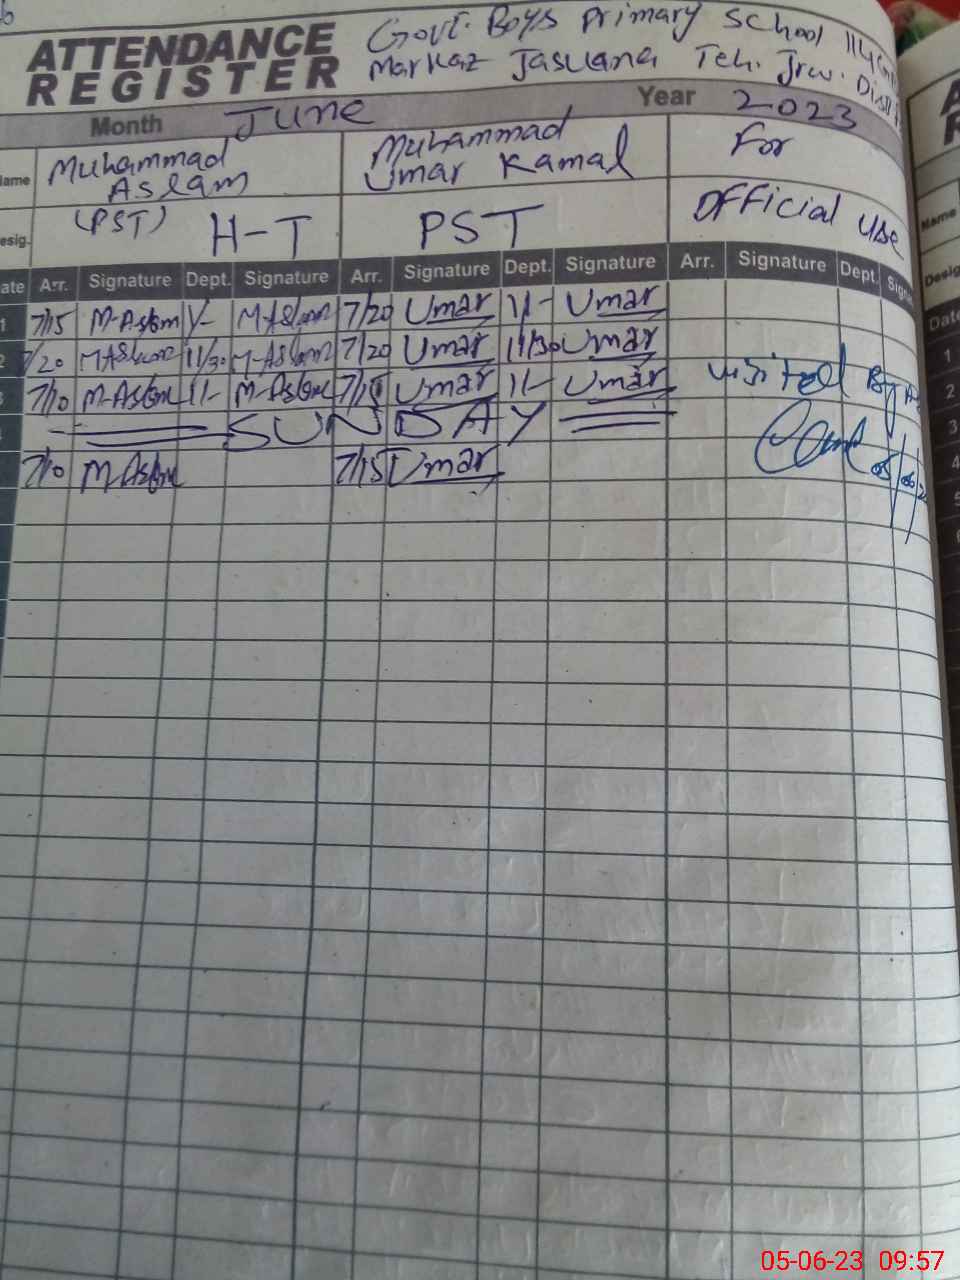 ATTENDANCE REGISTER
Govt. Boys Primary School 114
Markaz Jaswana Teh. Jrw. Distt
Month June Year 2023
Name Muhammad Aslam Muhammad Umar Kamal For
Desig. (PST) H-T PST Official Use
Date Arr. Signature Dept. Signature Arr. Signature Dept. Signature Arr. Signature Dept. Sign
1 7/15 M-Aslam M-Aslam 7/20 Umar 11- Umar
2 7/20 M-Aslam 11/30 M-Aslam 7/20 Umar 11/30 Umar
3 7/10 M-Aslam 11- M-Aslam 7/15 Umar 11- Umar visited By
SUNDAY
7/10 M-Aslam 7/15 Umar 05/06/2
Name
Desig
Date
1
2
3
4
5
05-06-23 09:57